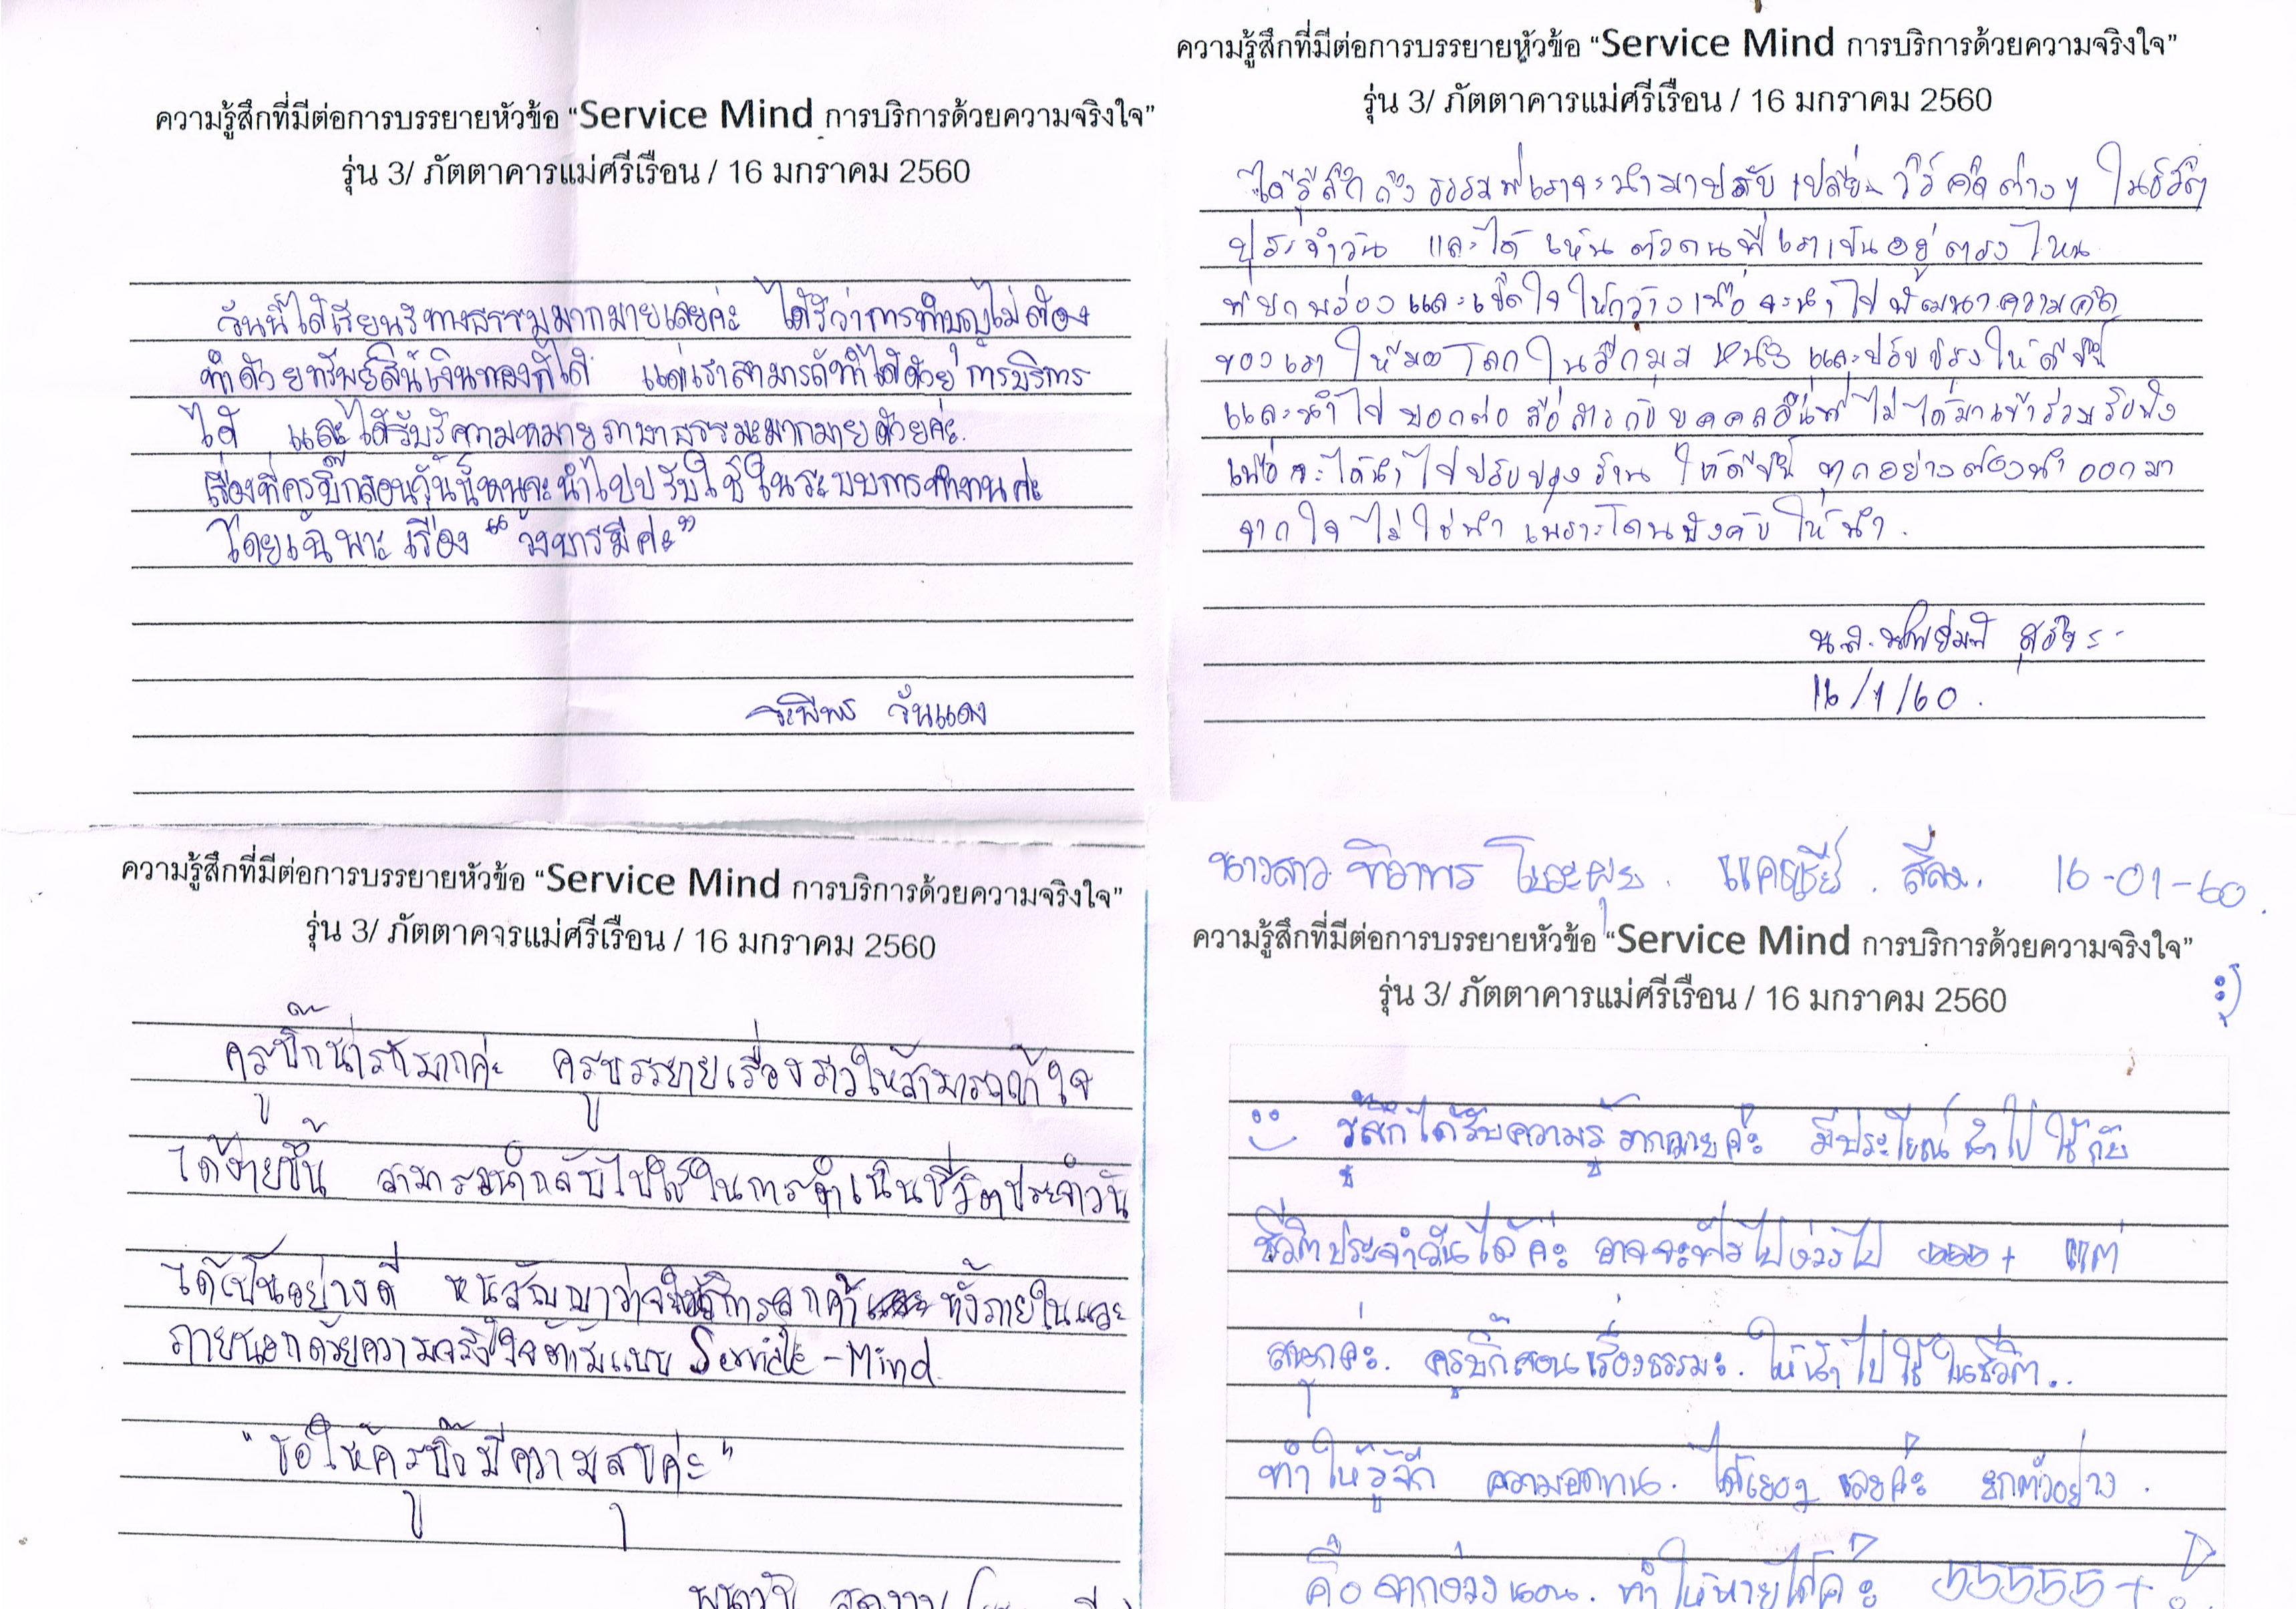 ความรู้สึกที่มีต่อการบรรยายหัวข้อ “Service Mind การบริการด้วยความจริงใจ”
รุ่น 3/ ภัตตาคารแม่ศรีเรือน / 16 มกราคม 2560
วันนี้ได้เรียนรู้ทางธรรมมากมายเลยค่ะ ได้รู้ว่าการทำบุญไม่ต้อง
ทำด้วยทรัพย์สินเงินทองก็ได้ แต่เราสามารถทำได้ด้วยการบริการ
ได้ และได้รับรู้ความหมายภาษาธรรมะมากมายด้วยค่ะ
เรื่องที่ครูบิ๊กสอนวันนี้หนูจะนำไปปรับใช้ในระบบการทำงานค่ะ
โดยเฉพาะ เรื่อง “วงบารมีค่ะ”
ระพีพร วันแดง
ความรู้สึกที่มีต่อการบรรยายหัวข้อ “Service Mind การบริการด้วยความจริงใจ”
รุ่น 3/ ภัตตาคารแม่ศรีเรือน / 16 มกราคม 2560
ได้รู้สึกถึง ธรรมที่เราจะนำมาปรับ เปลี่ยน วิธีคิดต่างๆ ในชีวิต
ประจำวัน และได้ เห็น ตัวตนที่เราเป็นอยู่ตรงไหน
ที่บกพร่อง และเปิดใจให้กว้าง เพื่อจะนำไปพัฒนาความคิด
ของเรา ให้มองโลกในอีกมุมหนึ่ง และปรับปรุงให้ดีขึ้น
และนำไปบอกต่อ สื่อสารกับบุคคลอื่นที่ไม่ได้มาเข้าร่วมรับฟัง
เพื่อจะได้นำไปปรับปรุงร้าน ให้ดีขึ้น ทุกอย่างต้องทำ ออกมา
จากใจ ไม่ใช่ทำ เพราะโดนบังคับให้ทำ.
น.ส.
16/1/60.
ความรู้สึกที่มีต่อการบรรยายหัวข้อ “Service Mind การบริการด้วยความจริงใจ”
รุ่น 3/ ภัตตาคจรแม่ศรีเรือน / 16 มกราคม 2560
ครูบิ๊กน่ารักมากค่ะ ครูบรรยายเรื่องราวให้สามารถเข้าใจ
ได้ง่ายขึ้น สามารถนำกลับไปใช้ในการดำเนินชีวิตประจำวัน
ได้เป็นอย่างดี หนูสัญญาว่าจะให้บริการลูกค้า ทั้งภายในและ
ภายนอกด้วยความจริงใจ Service-Mind
"ขอให้ครูบิ๊กมีความสุขค่ะ"
นางสาว ทิวาพร แคชเชียร์. สีลม. 16-01-60.
ความรู้สึกที่มีต่อการบรรยายหัวข้อ “Service Mind การบริการด้วยความจริงใจ”
รุ่น 3/ ภัตตาคารแม่ศรีเรือน / 16 มกราคม 2560
:)
รู้สึกได้รับความรู้มากมายค่ะ มีประโยชน์ นำไปใช้กับ
ชีวิตประจำวันได้ค่ะ อาจจะฟังไปง่วงไป 555+ แต่
สนุกค่ะ. ครูบิ๊กสอนเรื่องธรรมะ. ให้นำไปใช้ในชีวิต..
ทำให้รู้จัก ความอดทน. ได้เยอะๆ เลยค่ะ ยกตัวอย่าง.
คือ จากง่วงนอน. ทำให้หายได้ค่ะ 55555+